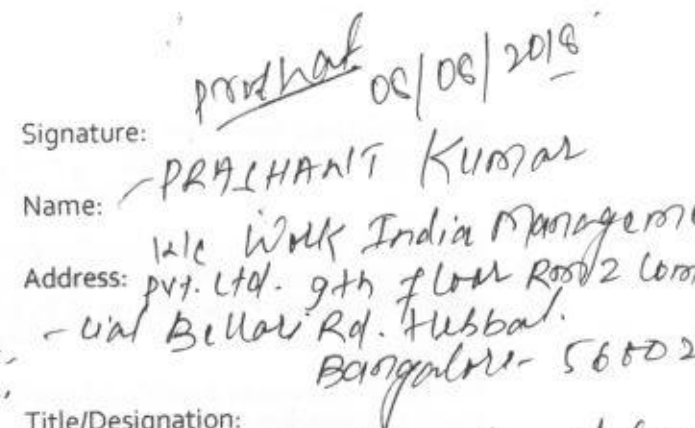 Prashant 06/06/2018
Signature:
Name: PRASHANT Kumar
Address: Work India Managem
Pvt. Ltd. 9th floor Com
- cial Bellari Rd. Hebbal.
Bangalore - 56002
Title/Designation: